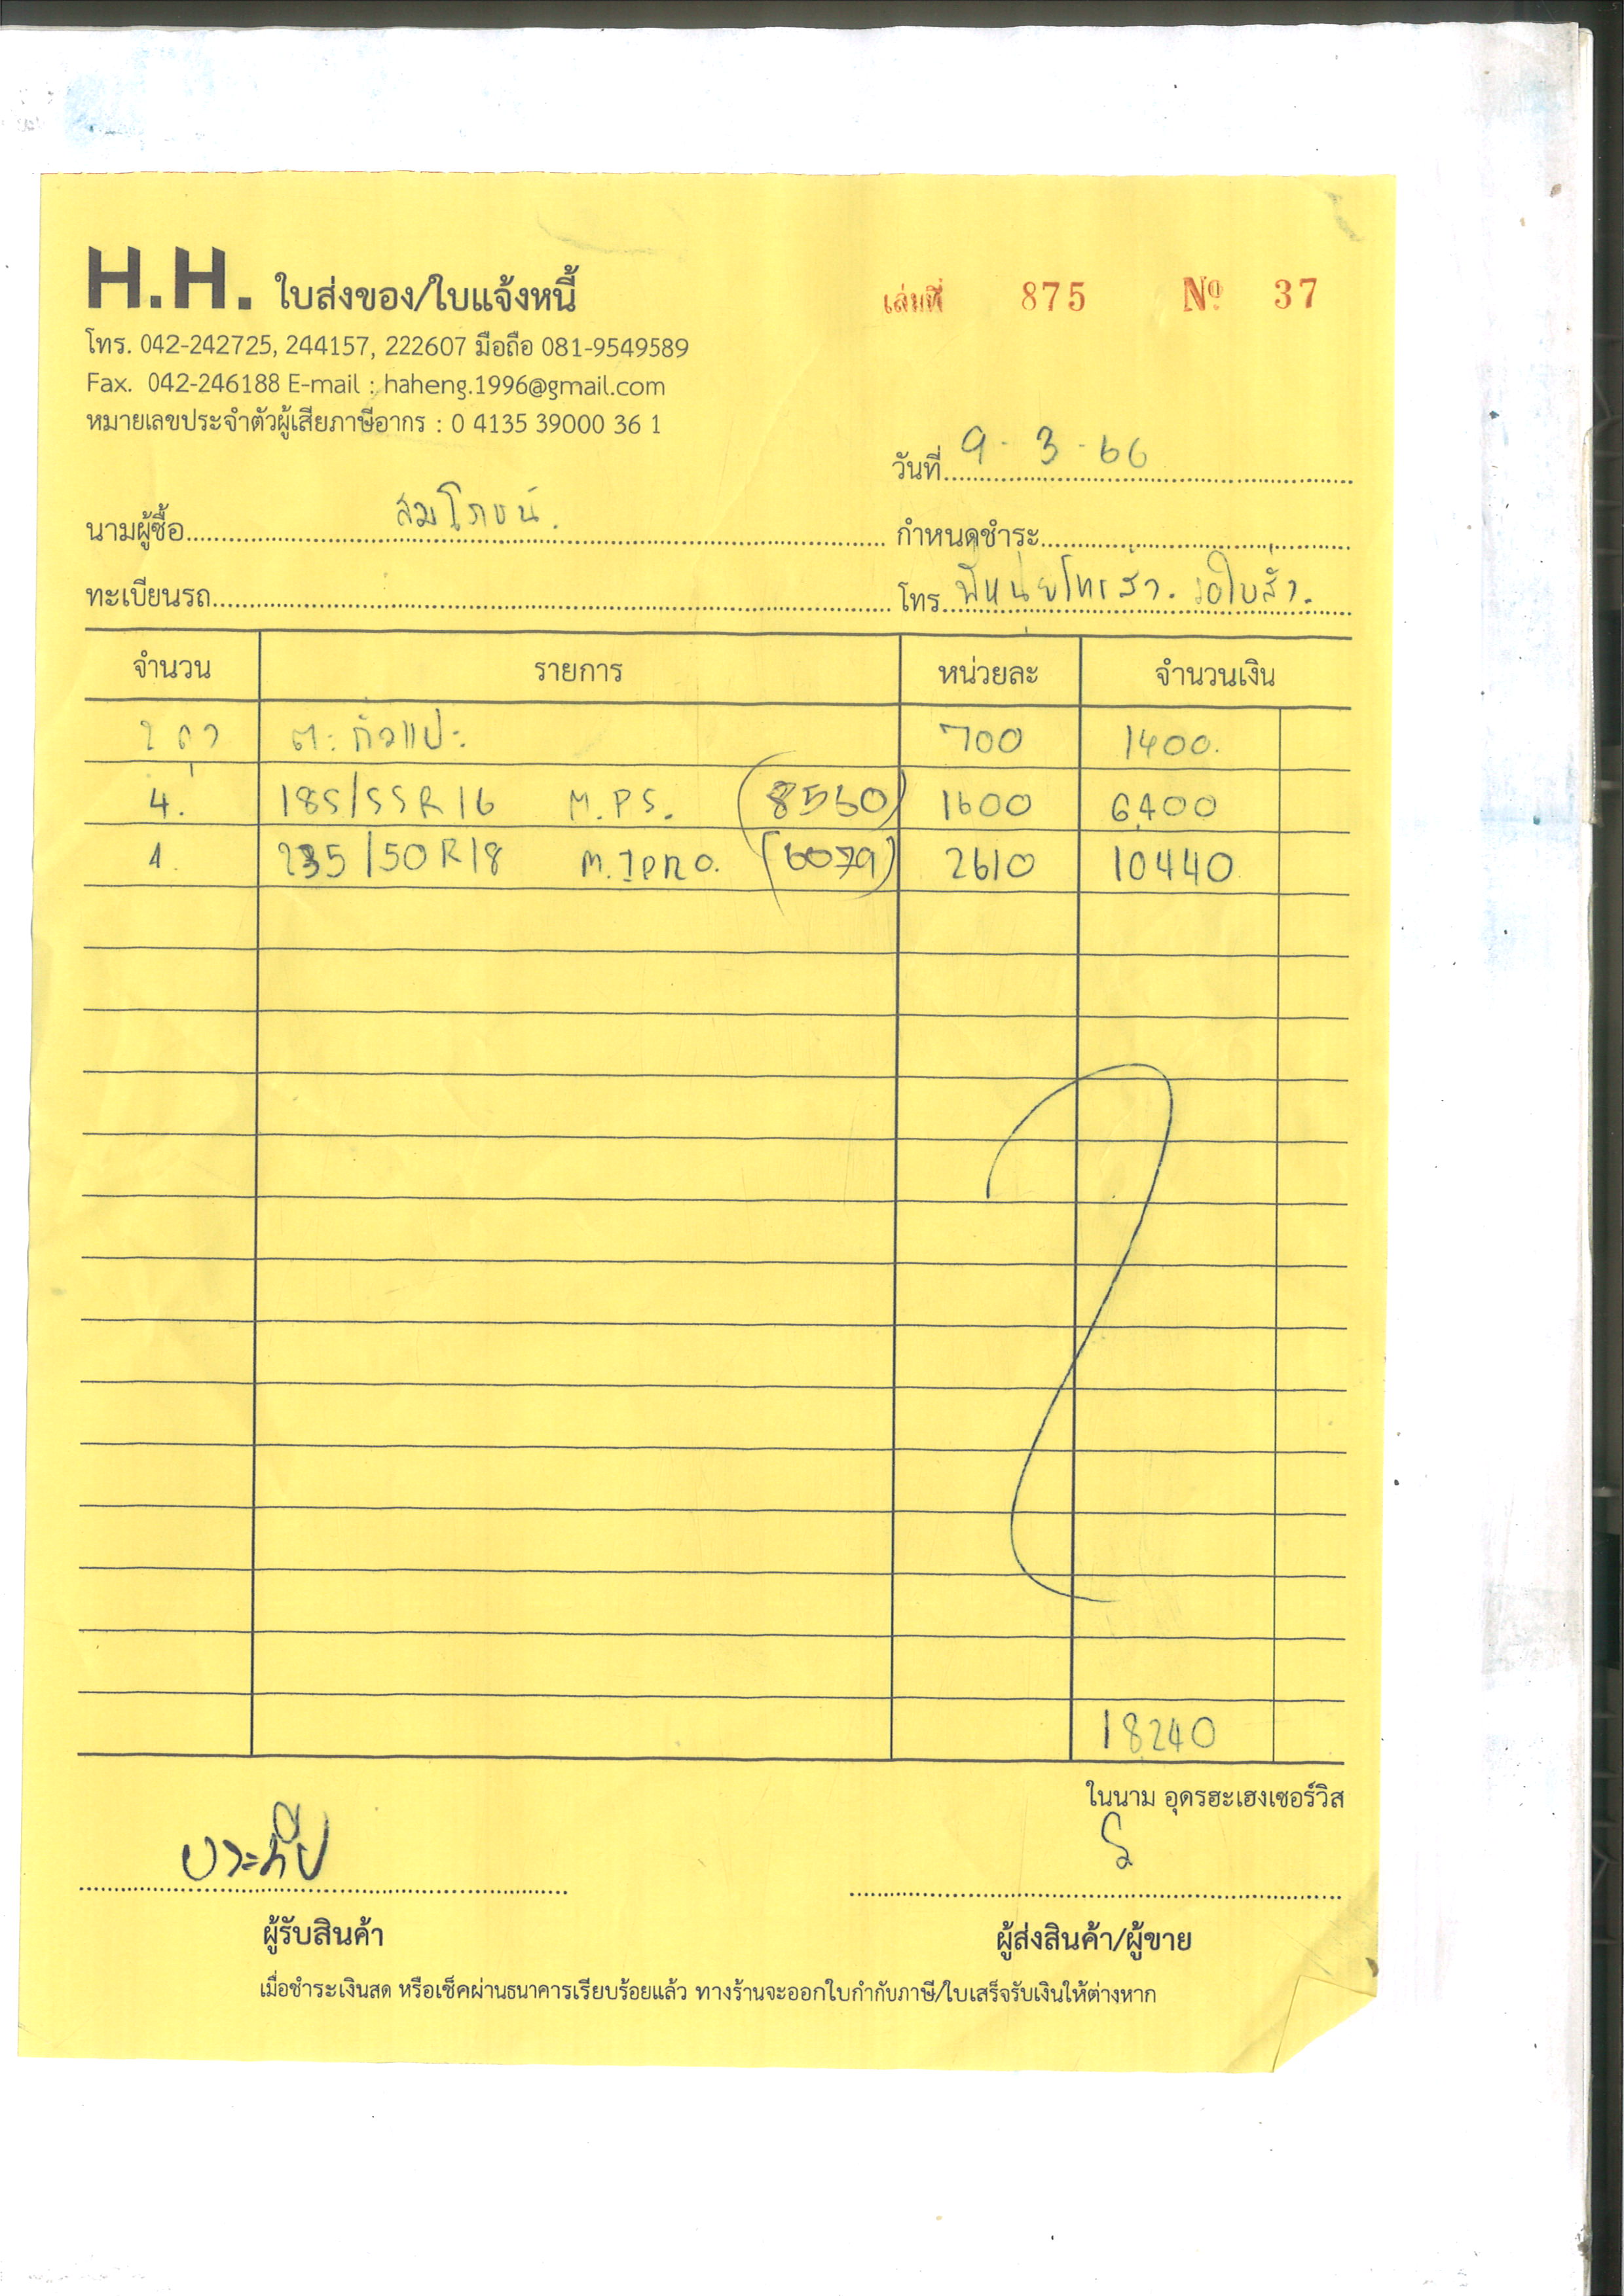 H.H. ใบส่งของ/ใบแจ้งหนี้ เล่มที่ 875 Nº 37
โทร. 042-242725, 244157, 222607 มือถือ 081-9549589
Fax. 042-246188 E-mail : haheng.1996@gmail.com
หมายเลขประจำตัวผู้เสียภาษีอากร : 0 4135 39000 36 1
วันที่ 9-3-66
นามผู้ซื้อ สมโภชน์. กำหนดชำระ
ทะเบียนรถ โทร
จำนวน รายการ หน่วยละ จำนวนเงิน
2 ตะกั่วแปะ 700 1400.
4. 185/55R16 M.PS. (8550) 1600 6400
235/50R18 (6079) 2610 10440
18240
ในนาม อุดรฮะเฮงเซอร์วิส
ประทีป
ผู้รับสินค้า ผู้ส่งสินค้า/ผู้ขาย
เมื่อชำระเงินสด หรือเช็คผ่านธนาคารเรียบร้อยแล้ว ทางร้านจะออกใบกำกับภาษี/ใบเสร็จรับเงินให้ต่างหาก